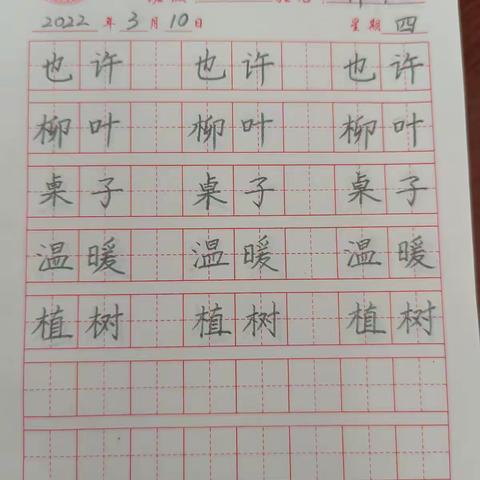 2022年3月10日 星期四
也许 也许 也许
柳叶 柳叶 柳叶
桌子 桌子 桌子
温暖 温暖 温暖
植树 植树 植树